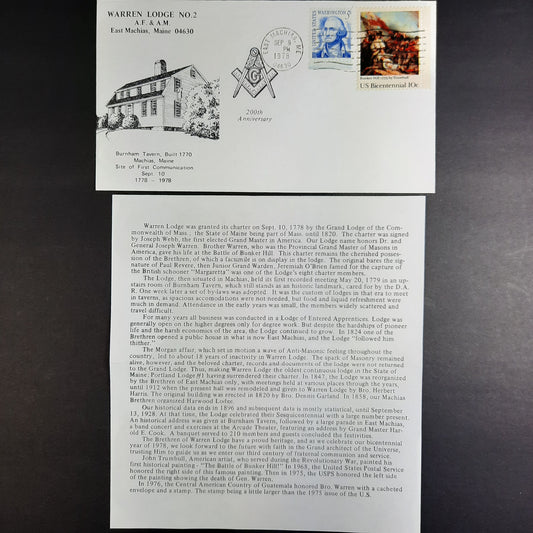 WARREN LODGE NO. 2
A.F. & A.M
East Machias, Maine 04630
EAST MACHIAS, ME
SEP 9
PM
1978
04630
UNITED STATES
WASHINGTON
5
Bunker Hill 1775 by Trumbull
US Bicentennial 10c
G
200th
Anniversary
Burnham Tavern, Built 1770
Machias, Maine
Site of First Communication
Sept. 10
1778 - 1978
Warren Lodge was granted its charter on Sept. 10, 1778 by the Grand Lodge of the Com-
monwealth of Mass., the State of Maine being part of Mass. until 1820. The charter was signed
by Joseph Webb, the first elected Grand Master in America. Our Lodge name honors Dr. and
General Joseph Warren. Brother Warren, who was the Provincial Grand Master of Masons in
America, gave his life at the Battle of Bunker Hill. This charter remains the cherished posses-
sion of the Brethren, of which a facsimile is on display in the lodge. The original bares the sig-
nature of Paul Revere, then Junior Grand Warden. Jeremiah O'Brien famed for the capture of
the British schooner "Margaretta" was one of the Lodge's eight charter members.
The Lodge, then situated in Machias, held its first recorded meeting May 20, 1779 in an up-
stairs room of Burnham Tavern, which still stands as an historic landmark, cared for by the D.A.
R. One week later a set of by-laws was adopted. It was the custom of lodges in that era to meet
in taverns, as spacious accomodations were not needed, but food and liquid refreshment were
much in demand. Attendance in the early years was small, the members widely scattered and
travel difficult.
For many years all business was conducted in a Lodge of Entered Apprentices. Lodge was
generally open on the higher degrees only for degree work. But despite the hardships of pioneer
life and the harsh economies of the area, the Lodge continued to grow. In 1824 one of the
Brethren opened a public house in what is now East Machias, and the Lodge "followed him
thither."
The Morgan affair, which set in motion a wave of Anti-Masonic feeling throughout the
country, led to about 18 years of inactivity in Warren Lodge. The spark of Masonry remained
alive, however, and the beloved charter, records and documents of the lodge were not returned
to the Grand Lodge. Thus, making Warren Lodge the oldest continuous lodge in the State of
Maine; Portland Lodge #1 having surrendered their charter. In 1847, the Lodge was reorganized
by the Brethren of East Machias only, with meetings held at various places through the years,
until 1912 when the present hall was remodeled and given to Warren Lodge by Bro. Herbert
Harris. The original building was erected in 1820 by Bro. Dennis Garland. In 1858, our Machias
Brethren organized Harwood Lodge.
Our historical data ends in 1896 and subsequent data is mostly statistical, until September
13, 1928. At that time, the Lodge celebrated their Sesquicentennial with a large number present.
An historical address was given at Burnham Tavern, followed by a large parade in East Machias,
a band concert and exercises at the Arcade Theater, featuring an address by Grand Master Har-
old E. Cook. A banquet served to 210 members and guests concluded the festivities.
The Brethren of Warren Lodge have a proud heritage, and as we celebrate our bicentennial
year of 1978, we look forward to the future with faith in the Grand architect of the Universe,
trusting Him to guide us as we enter our third century of fraternal communion and service.
John Trumbull, American artist, who served during the Revolutionary War, painted his
first historical painting - "The Battle of Bunker Hill!" In 1968, the United States Postal Service
honored the right side of this famous painting. Then in 1975, the USPS honored the left side
of the painting showing the death of Gen. Warren.
In 1976, the Central American Country of Guatemala honored Bro. Warren with a cacheted
envelope and a stamp. The stamp being a little larger than the 1975 issue of the U.S.